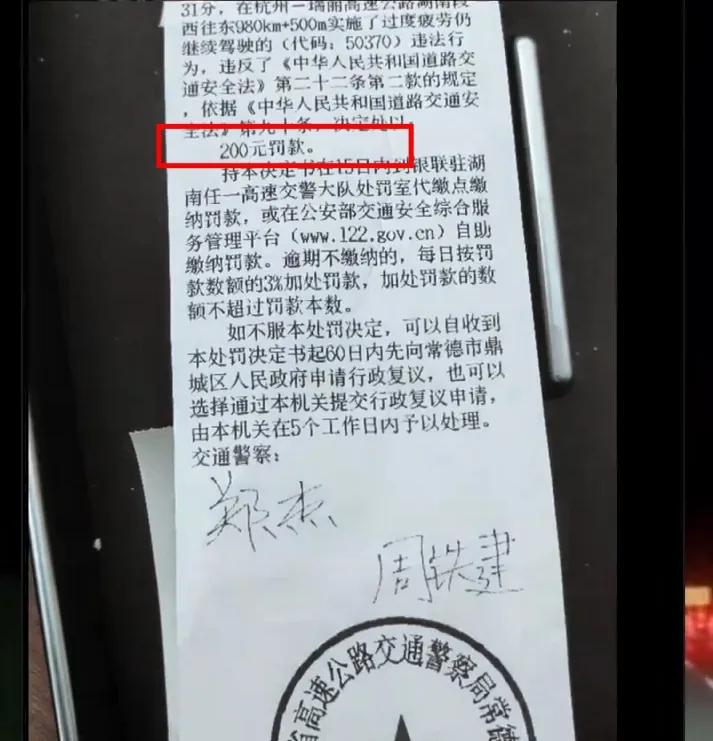 31分，在杭州一瑞丽高速公路湖南段
西往东980km+500m实施了过度疲劳仍
继续驾驶的（代码：50370）违法行
为，违反了《中华人民共和国道路交
通安全法》第二十二条第二款的规定
，依据《中华人民共和国道路交通安
全法》第九十条，决定处以：
200元罚款。
持本决定书在15日内到银联驻湖
南任一高速交警大队处罚室代缴点缴
纳罚款，或在公安部交通安全综合服
务管理平台（www.122.gov.cn）自助
缴纳罚款。逾期不缴纳的，每日按罚
款数额的3%加处罚款，加处罚款的数
额不超过罚款本数。
如不服本处罚决定，可以自收到
本处罚决定书起60日内先向常德市鼎
城区人民政府申请行政复议，也可以
选择通过本机关提交行政复议申请，
由本机关在5个工作日内予以处理。
交通警察：
郑杰
周铁建
省高速公路交通警察局常德